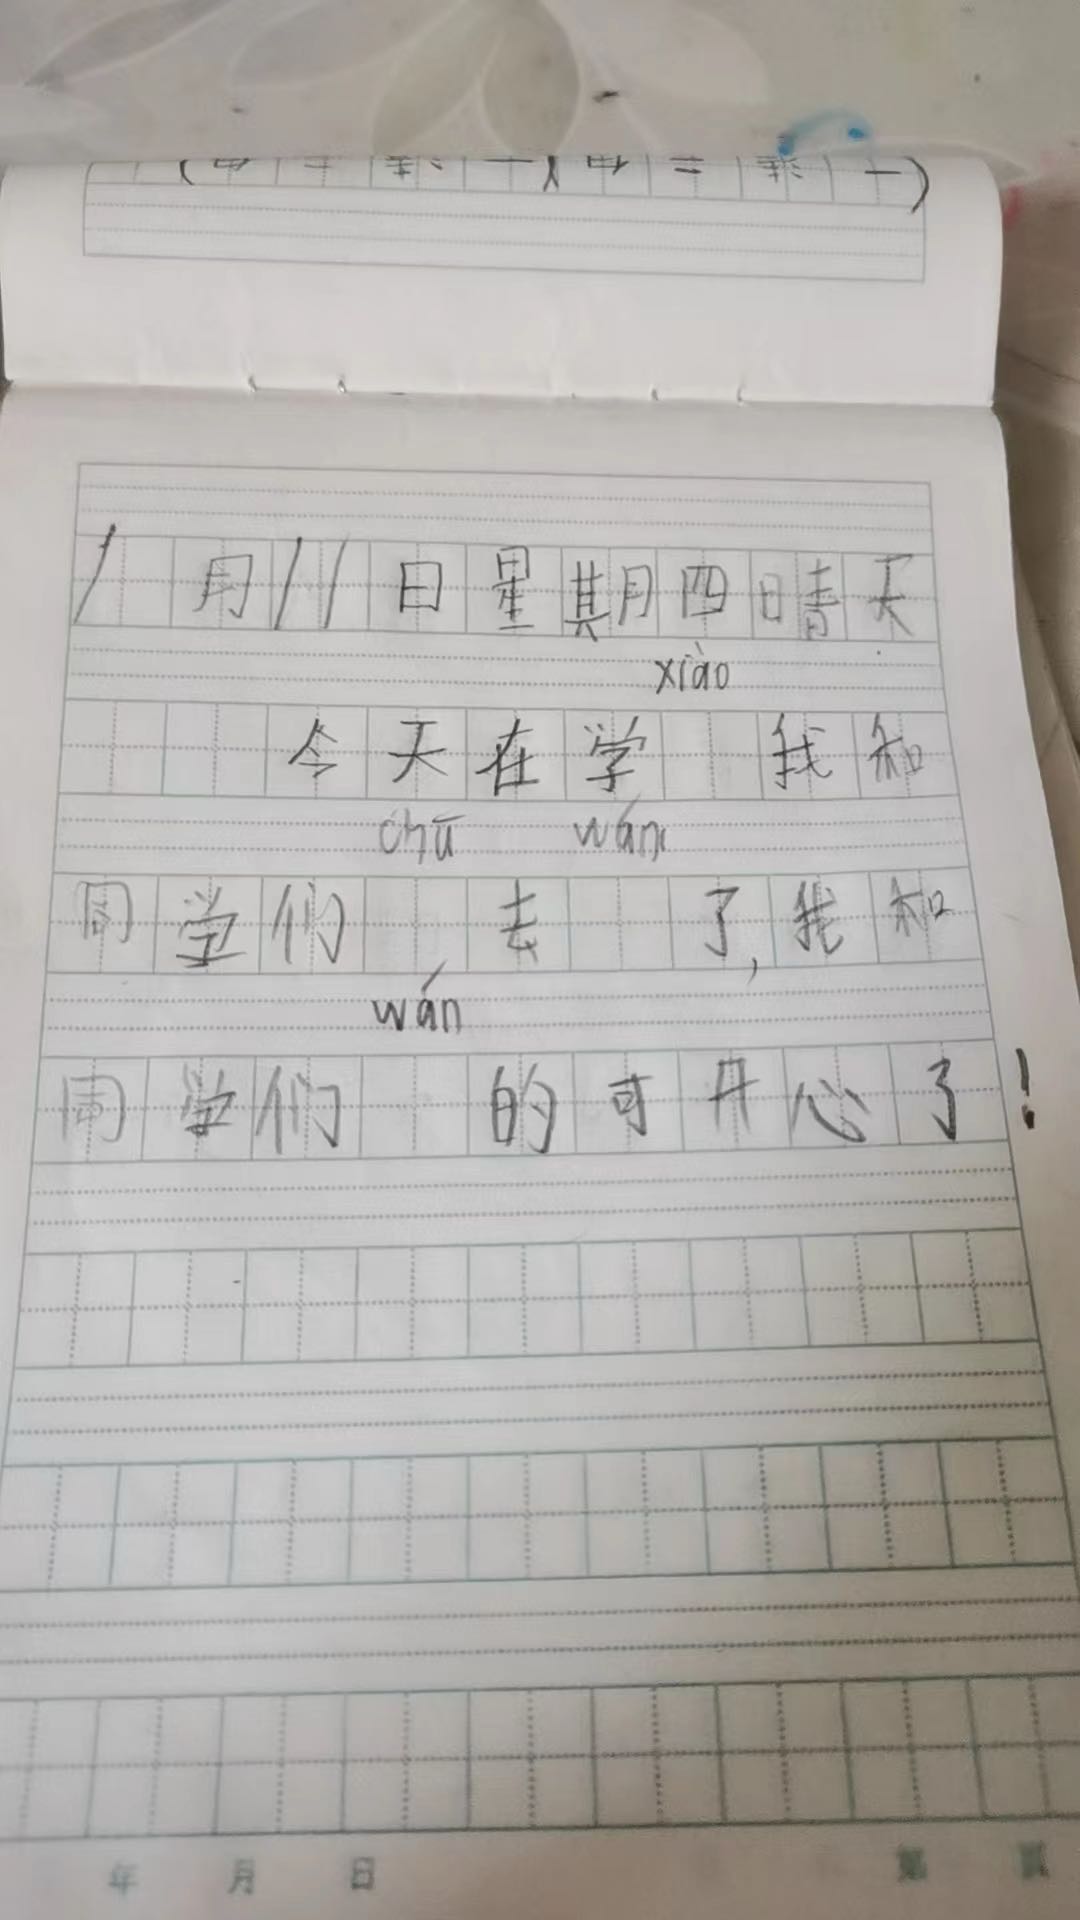 1月11日星期四晴天
xiào
今天在学 我知
chū wán
同学们 去 了,我和
wán
同学们 的可开心了!
年 月 日 第 页